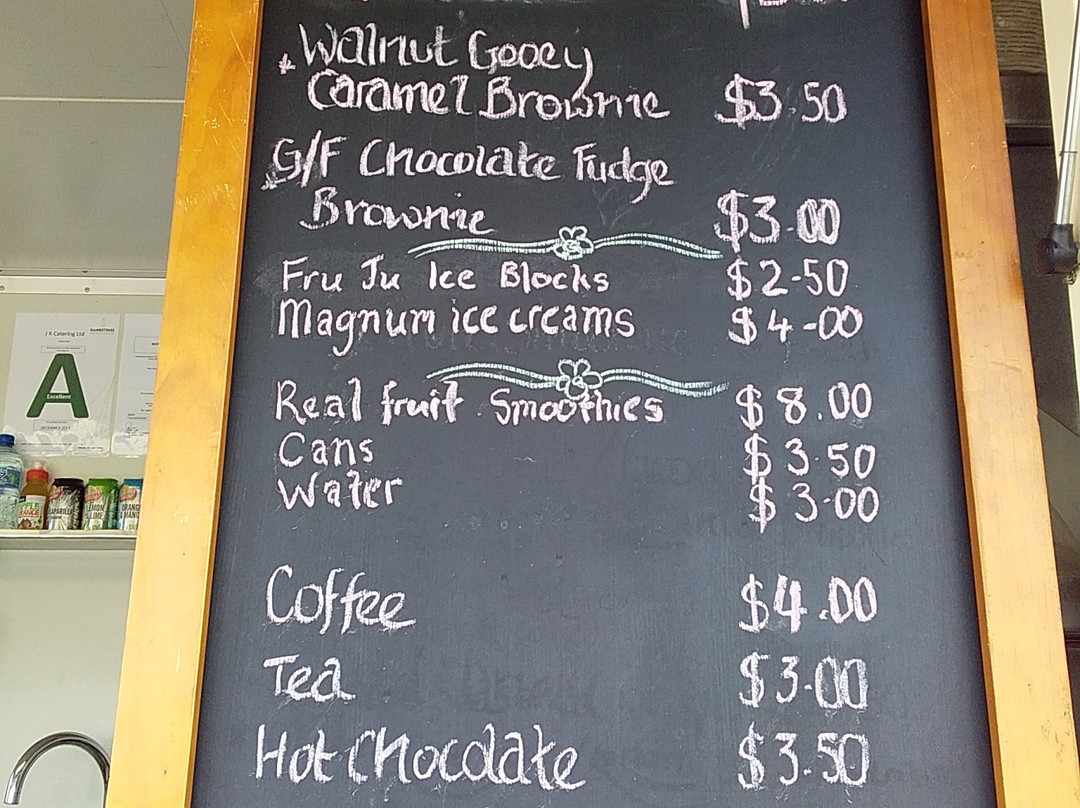 Walnut Gooey
Caramel Brownie $3.50
G/F Chocolate Fudge
Brownie $3.00
Fru Ju Ice Blocks $2-50
Magnum ice creams $4-00
Real fruit Smoothies $8.00
Cans $3.50
Water $3.00
Coffee $4.00
Tea $3.00
Hot Chocolate $3.50
J K Catering Ltd
A
Excellent
LEMON
LIME